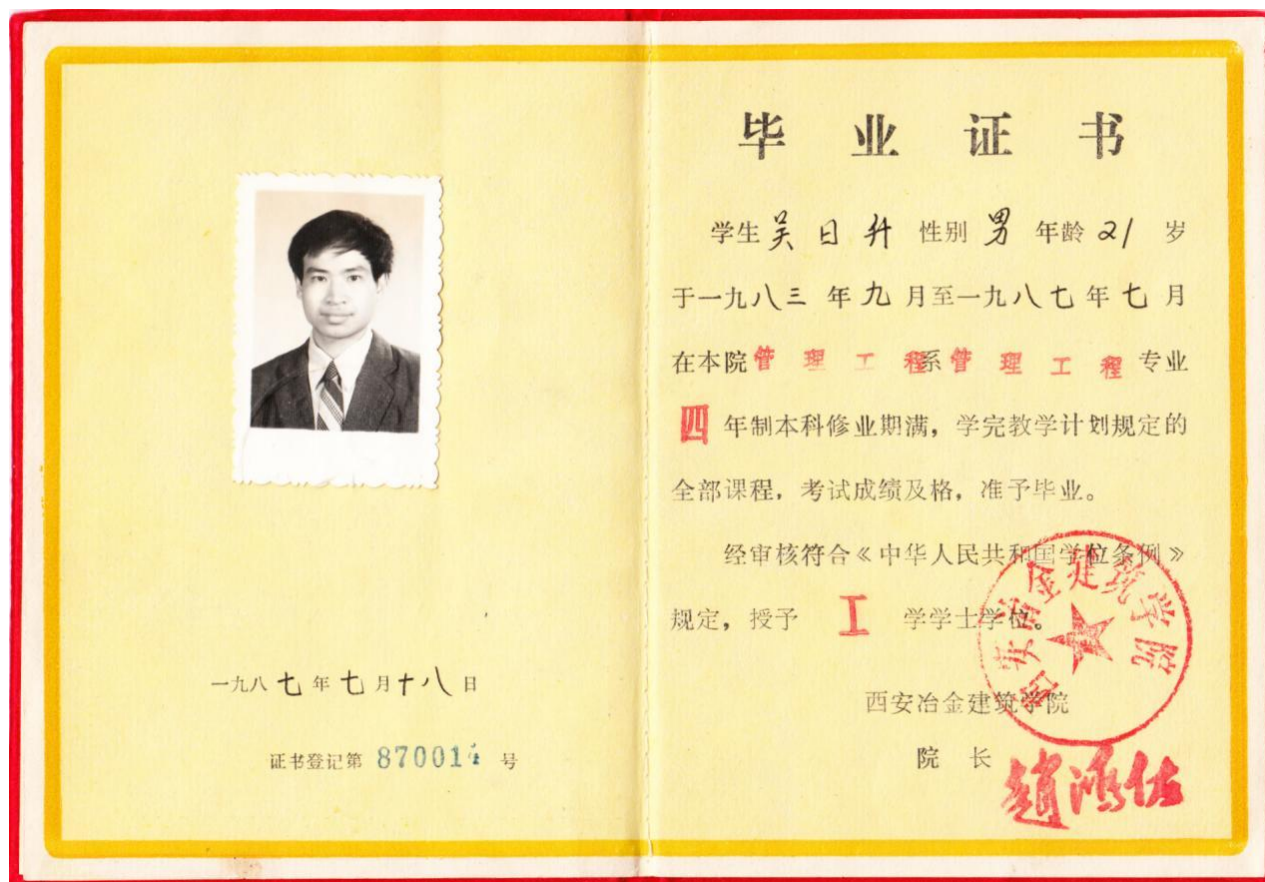 一九八七年七月十八日
证书登记第870014号
毕业证书
学生吴日升性别男年龄21岁
于一九八三年九月至一九八七年七月
在本院管理工程系管理工程专业
四年制本科修业期满，学完教学计划规定的
全部课程，考试成绩及格，准予毕业。
经审核符合《中华人民共和国学位条例》
规定，授予工学学士学位。
西安冶金建筑学院
西安冶金建筑学院
院长
趙鴻佐